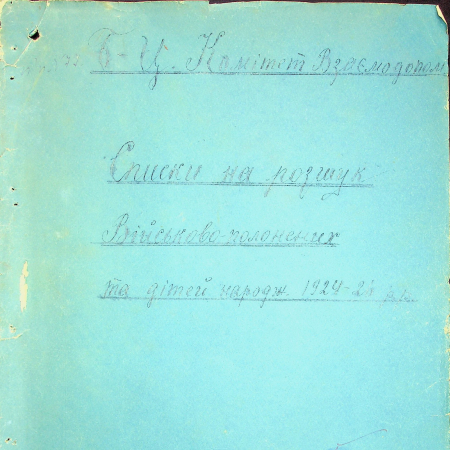 Б-Ц. Комітет Взаємодопом
Списки на розшук
Військово-полонених
та дітей народж. 1924-27 р.р.